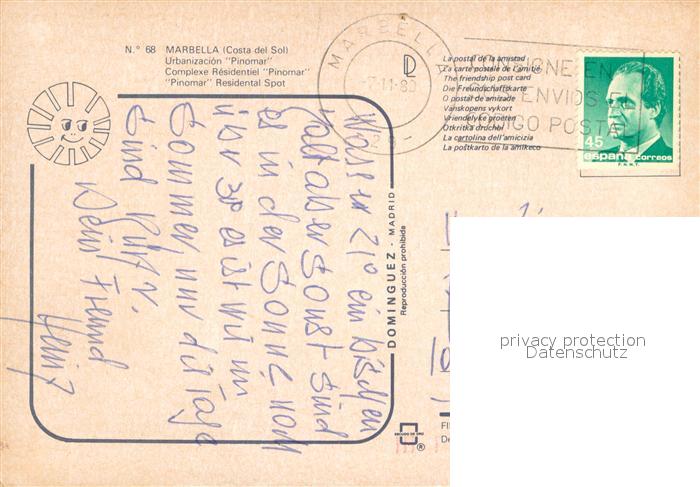 N.° 68 MARBELLA (Costa del Sol)
Urbanización "Pinomar"
Complexe Résidentiel "Pinomar"
"Pinomar" Residental Spot
MARBELLA
-7.11.89
La postal de la amistad
La carte postale de l'amitié
The friendship post card
Die Freundschaftskarte
O postal de amizade
Vanskopens vykort
Vriendelyke groeten
Otkritka druchbi
La cartolina dell'amicizia
La poštkarto de la amikeco
ENVIOS
POSTAL
45
españa correos
F.N.M.T.
Wasser 21° ein bischen
kalt aber sonst sind
es in der Sonne
über 30° es ist wie im
Sommer nur die Tage
sind kurz.
Dein Freund
Heinz
DOMINGUEZ - MADRID
Reproducción prohibida
ESCUDO DE ORO
®
privacy protection
Datenschutz